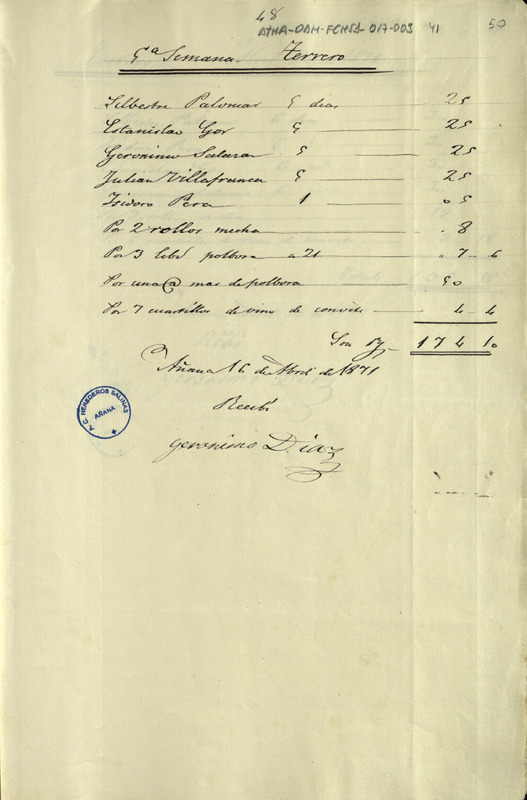 48
ATHA-DAH-FCHSS-017-003 41
50
5ª Semana. Terrero
Silbestre Palomar 5 dias 25
Estanislao Gor 5 25
Geronimo Salazar 5 25
Julian Villafranca 5 25
Isidoro Pera 1 05
Por 2 rollos mecha 8
Por 3 libs polbora a 21 7-6
Por una @ mas de polbora 50
Por 7 cuartillos de vino de convite 4-4
Son 174 10
Añana 16 de Abril de 1871
Recibi
Geronimo Diaz
A. C. HEREDEROS SALINAS
AÑANA